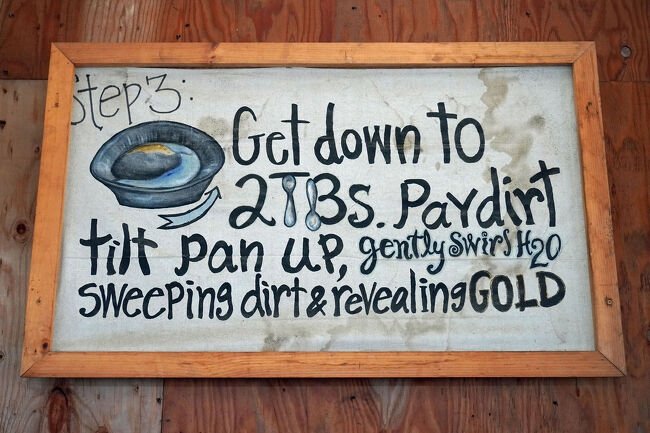 Step 3:
Get down to
2TBs. Paydirt
tilt pan up, gently swirl H20
sweeping dirt & revealing GOLD